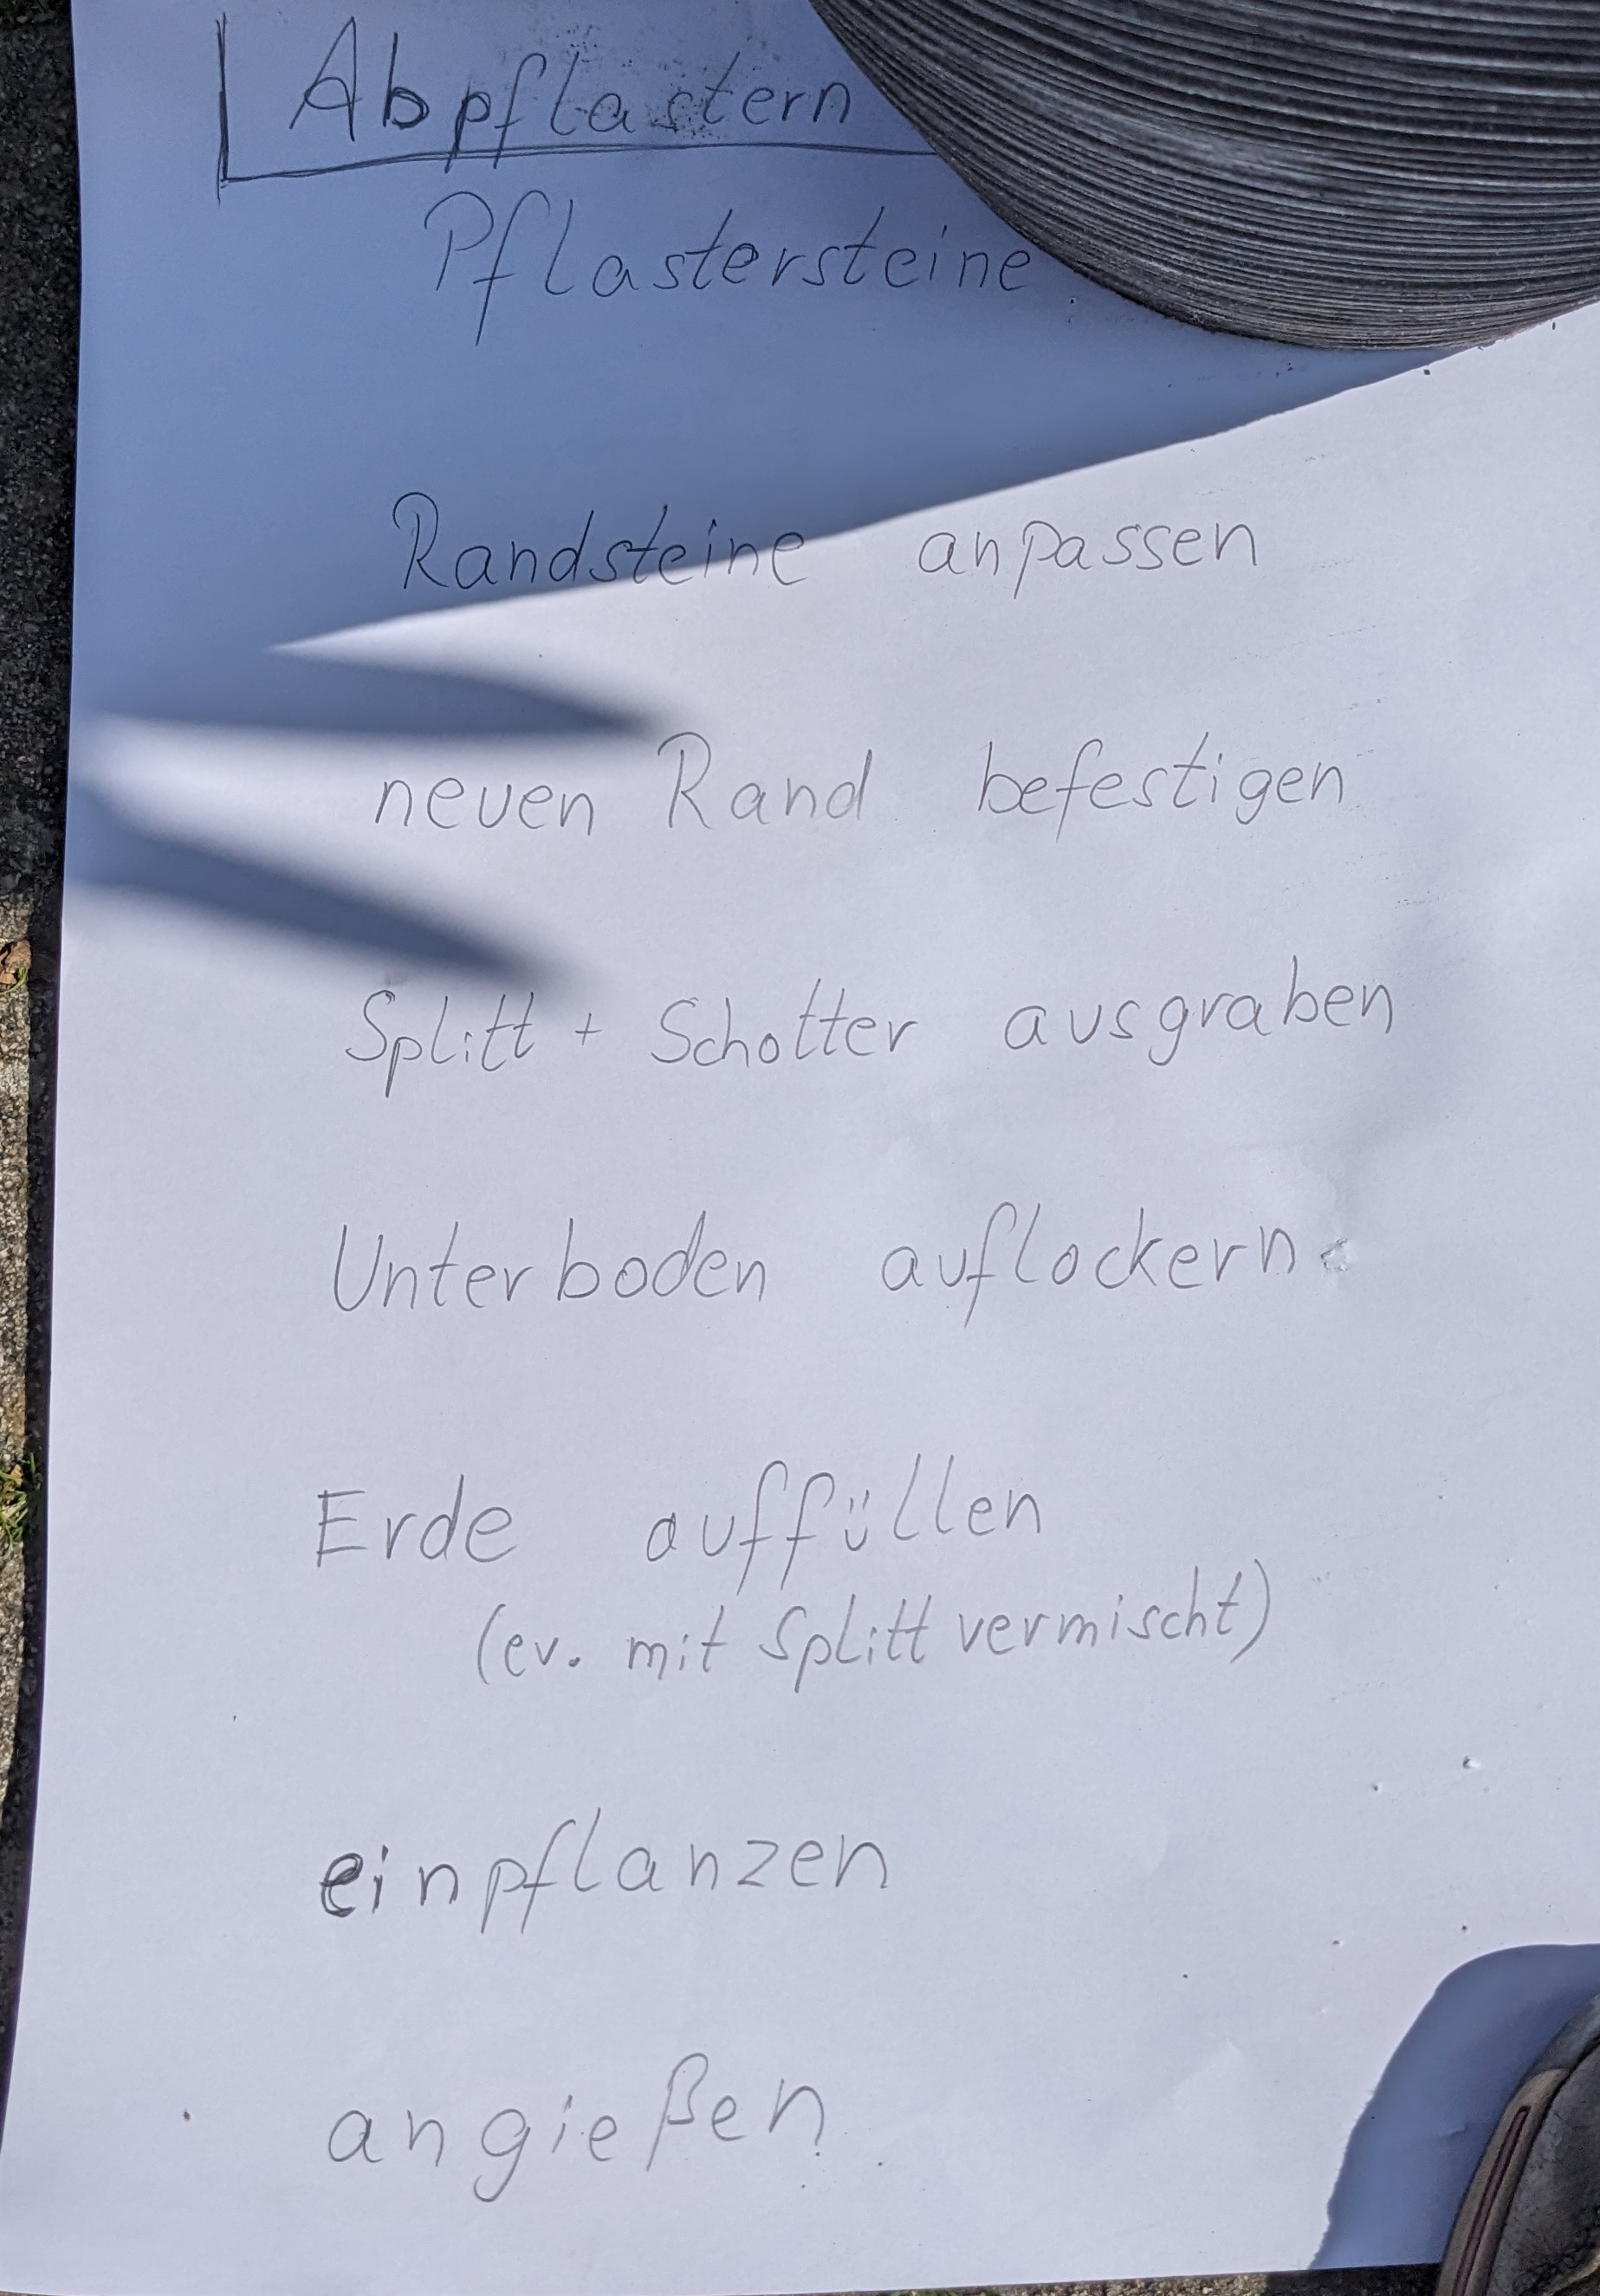 Abpflastern
Pflastersteine
Randsteine anpassen
neuen Rand befestigen
Splitt + Schotter ausgraben
Unterboden auflockern
Erde auffüllen
(ev. mit Splitt vermischt)
einpflanzen
angießen